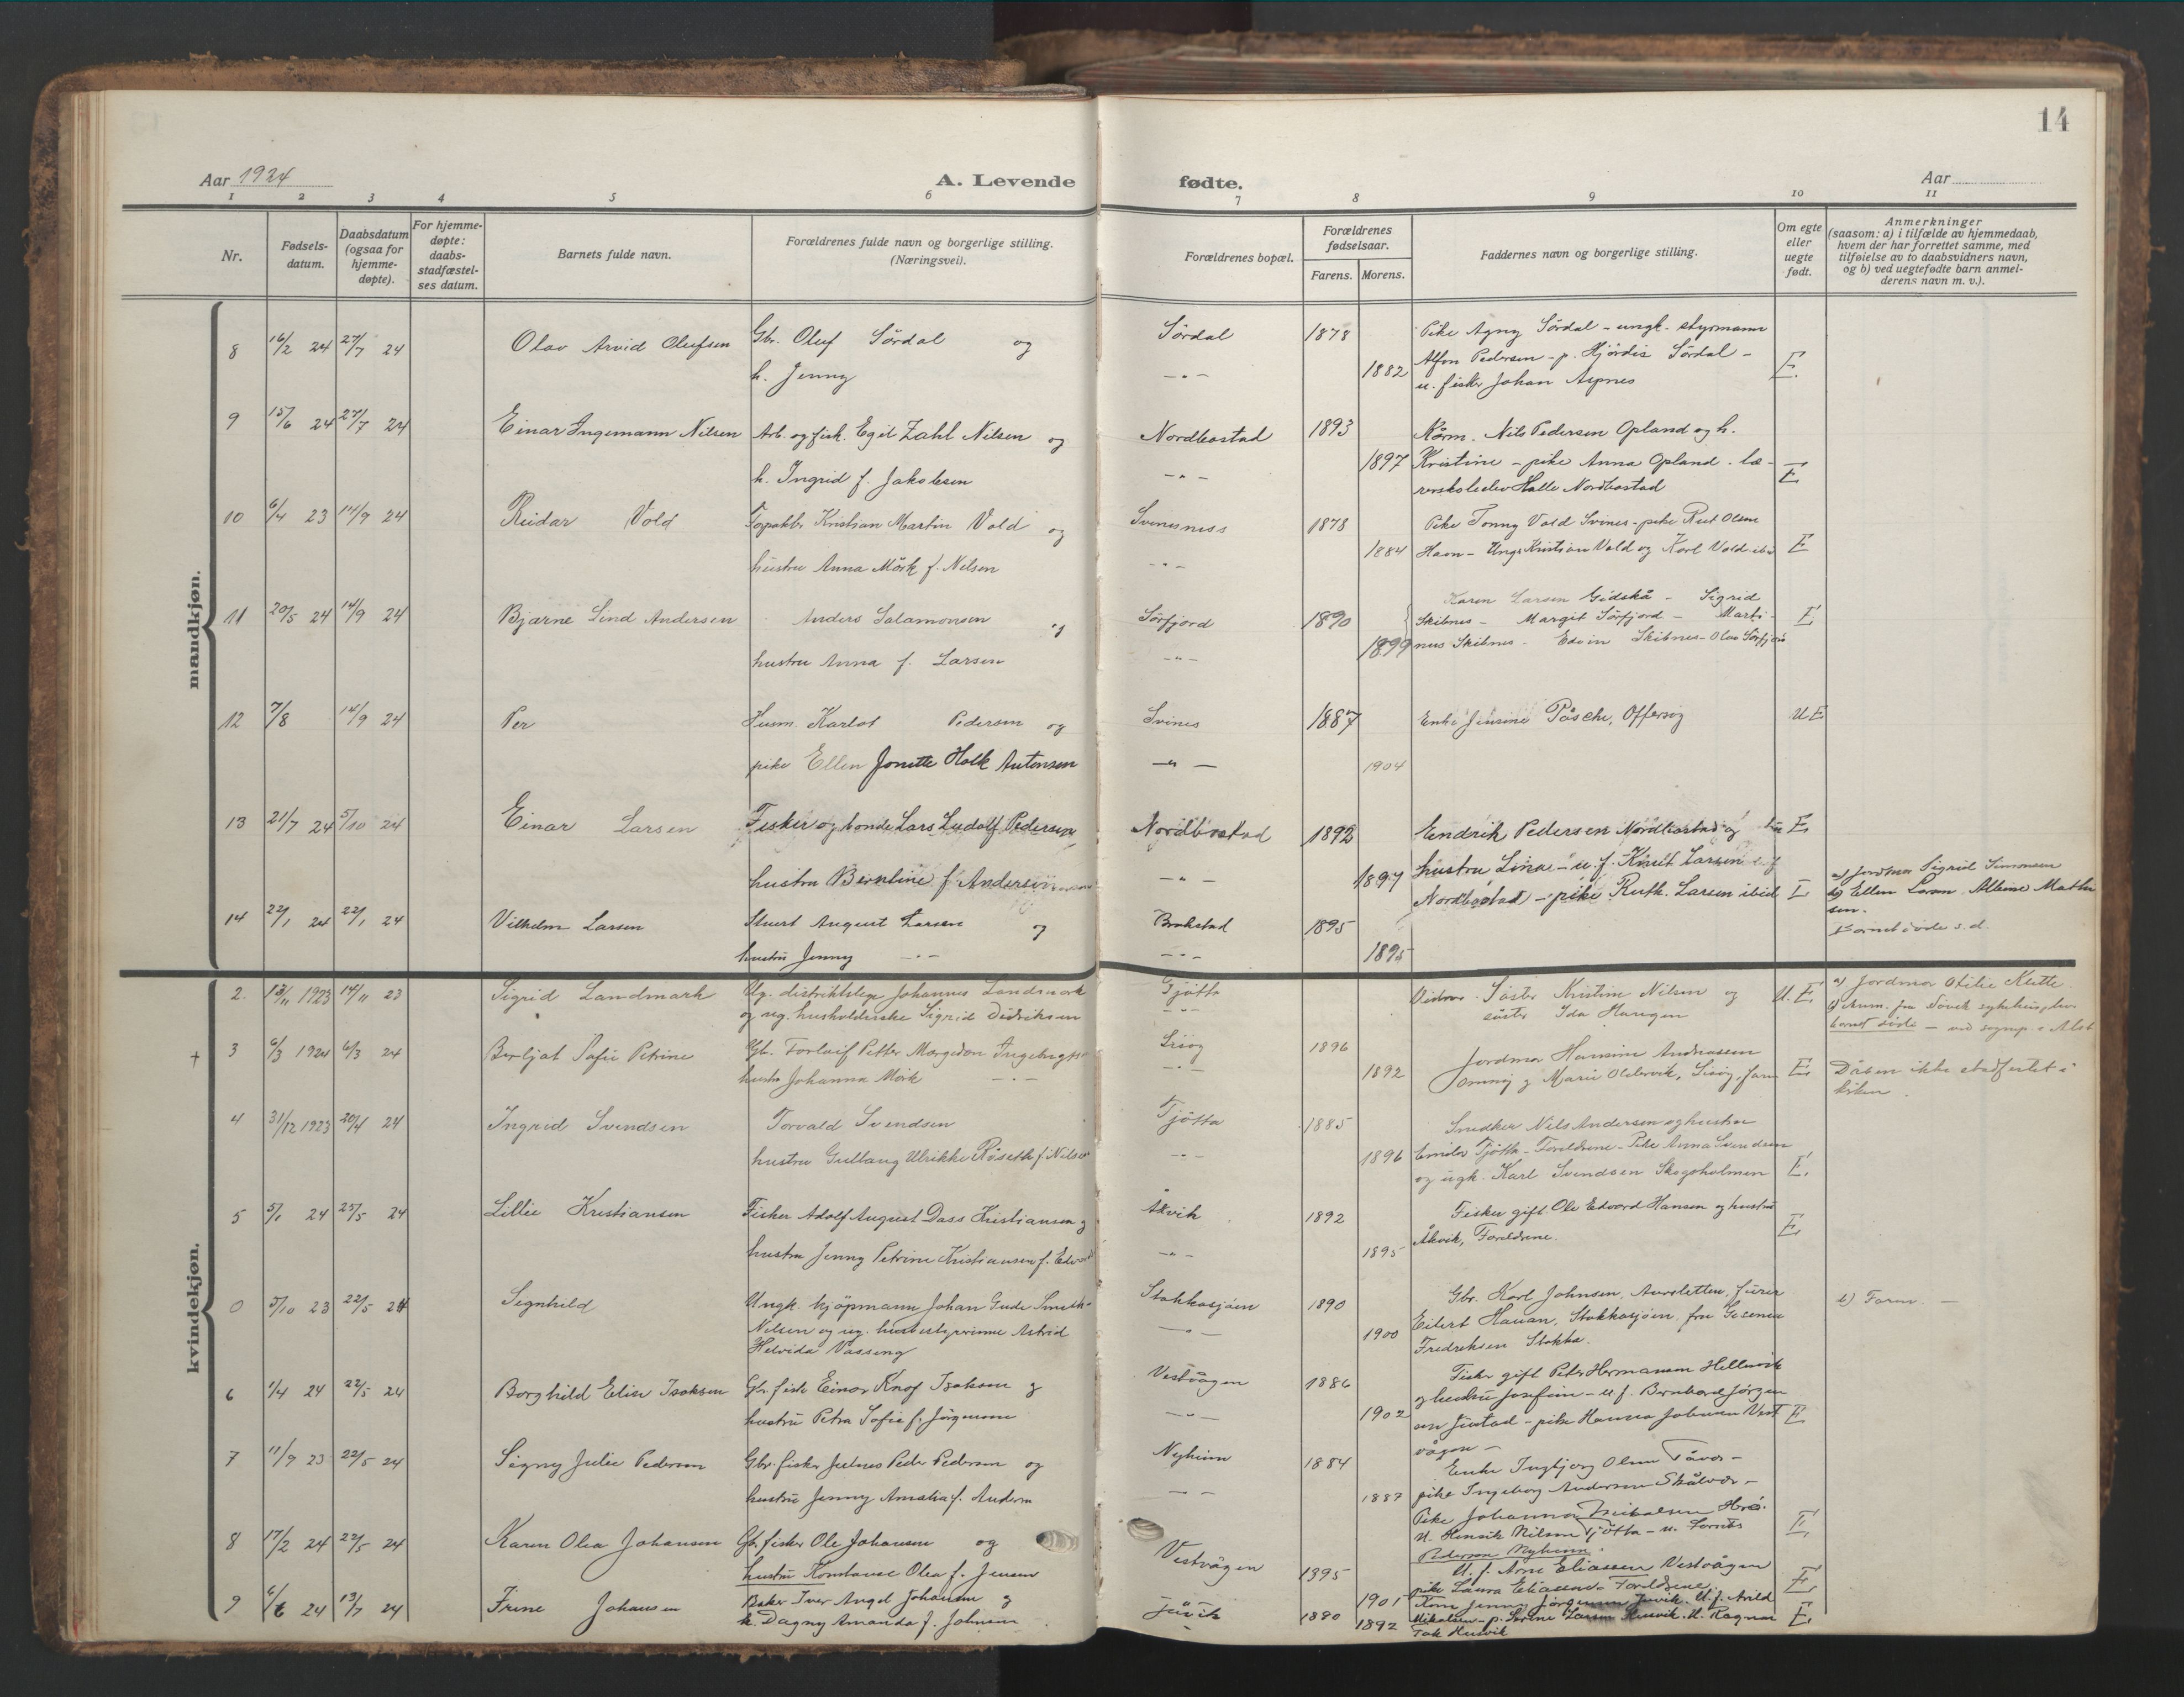 14
Aar 1924
A. Levende fødte.
Aar
1 2 3 4 5 6 7 8 9 10 11
Nr.
Fødsels-
datum.
Daabsdatum
(ogsaa for
hjemme-
døpte).
For hjemme-
døpte:
daabs-
stadfæstel-
ses datum.
Barnets fulde navn.
Forældrenes fulde navn og borgerlige stilling.
(Næringsvei).
Forældrenes bopæl.
Forældrenes
fødselsaar.
Farens. Morens.
Faddernes navn og borgerlige stilling.
Om egte
eller
uegte
født.
Anmerkninger
(saasom: a) i tilfælde av hjemmedaab,
hvem der har forrettet samme, med
tilføielse av to daabsvidners navn,
og b) ved uegtefødte barn anmel-
derens navn m. v.).
mandkjøn.
8 16/2 24 27/7 24 Olav Arvid Olufsen Gbr. Oluf Sördal og Sördal 1878 Pike Agny Sördal - ungk. styrmann
h. Jenny - " - 1882 Alfon Pedersen - p. Hjördis Sördal - E.
u. fisker Johan Aspnes
9 15/6 24 27/7 24 Einar Ingemann Nilsen Arb. og fisk. Egil Zahl Nilsen og Nordbostad 1893 Kårm. Nils Pedersen Opland og h.
h. Ingrid f. Jakobsen - " - 1897 Kristine - pike Anna Opland - læ- E
rerskoleelev Halle Nordbostad
10 6/4 23 14/9 24 Reidar Vold Kristian Martin Vold og 1878 Pike Tonny Vold Svines - pike Rut Olsen
hustru Anna Mörk f. Nilsen - " - 1884 Havn - Ungk Kristian Vold og Karl Vold E
11 20/5 24 14/9 24 Bjarne Lind Andersen Anders Salamonsen og Sörfjord 1890 Karen Larsen Gidskå - Sigrid
Skibnes - Margit Sörfjord - Marti- E
hustru Anna f. Larsen - " - 1899 nus Skibnes - Edvin Skibnes - Olav Sörfjord
12 7/8 14/9 24 Per Husm. Karlot Pedersen og Svines 1887 Enke Jensine Påsche, Offersöy U E
pike Ellen Jonette Holk Antonsen - " - 1904
13 21/7 24 5/10 24 Einar Larsen Fisker og bonde Lars Ludolf Pedersen Nordbostad 1892 Endrik Pedersen Nordbostad og E
hustru Berntine f. Andersen - " - 1897 hustru Lina - u. f. Knut Larsen
Nordbostad - pike Ruth Larsen ibid E
a) Jordmor Sigrid Simonsen
b) Ellen Larsen, Albine Mathi
sen.
Barnet döde s. d.
14 22/1 24 22/1 24 Vilhelm Larsen August Larsen og Brækstad 1895
hustru Jenny - " - - " - 1895
kvindekjøn.
2. 13/11 1923 14/11 23 Sigrid Landmark Ug. distriktslege Johannes Landmark Tjötta Vidner. Söster Kristine Nilsen og U. E
og ug. husholderske Sigrid Didriksen - " - söster Ida Hansen
a) Jordmor Otilie Klette
barnet döde
+ 3 6/3 1924 6/3 24 Berljot Sofie Petrine Gb. Torleif Petter Ingebrigts 1896 Jordmor Hansine Andreassen
hustr Johanna Mörk - " - - " - 1892 E
Dåben ikke stadfestet i
kirken.
4 31/12 1923 20/4 24 Ingrid Svendsen Torvald Svendsen Tjötta 1885 Snedker Nils Andersen og hustru
hustru Gullaug Ulrikke Röseth f. Nilsen - " - 1896 Emilie Tjötta - Foreldrene - Pike Anna Svendsen
og ugk. Karl Svendsen Skogsholmen E.
5 5/1 24 25/5 24 Lillie Kristiansen Fisker Adolf August Dass Kristiansen og Åkvik 1892 Fisker gift Ole Edvard Hansen og hustru
hustru Jenny Petrine Kristiansen f. Edv - " - 1895 Åkvik, Foreldrene. E
0 5/10 23 22/5 24 Signhild Ungk. kjöpmann Johan Gude Smith- Stokkasjöen 1890 Gbr. Karl Johnsen, Aursletten,
Nilsen og ug. husbestyrerinne Astrid - " - 1900 Eilert Hauan, Stokkasjöen, fru Gesena
Helvida Vasseng Fredriksen Stokka.
b) Farm. -
6 1/4 24 22/5 24 Borghild Elise Isaksen Gbr. fisk Einar Knof Isaksen og Vestvågen 1886 Fisker gift Peter Hermansen Hellesvik
hustru Petra Sofie f. Jörgensen - " - 1902 og hustru Josefine - u. f. Bernhard Jörgen
sen - pike Hanna Johnsen Vest E
vågen -
7 11/9 23 22/5 24 Signy Julie Pedersen Gbr. fisker Julnes Peder Pedersen og Nyheim 1884 Enke Ingbjörg Olsen Tåvær -
hustru Jenny Amalia f. Andersen - " - 1887 pike Ingeborg Andersen Skålvær -
Pike Johanna Mikalsen
u. Henrik Nilsen Tjötta - u. E
Pedersen Nyheim.
8 17/2 24 22/5 24 Karen Olea Johansen Gb. fisker Ole Johansen og Vestvågen 1895 U. f. Arne Eliassen Vestvågen
hustru Konstanse Olea f. Jensen 1901 pike Laura Eliassen - Foreldrene. E
9 6/6 24 13/7 24 Irene Johansen Baker Iver Angel Johansen og 1880 Jenny Jörgensen U. f. Arild
h. Dagny Amanda f. Johnsen 1892 Mikalsen - p. Serine Larsen Husvik. U. Ragnar E
Husvik